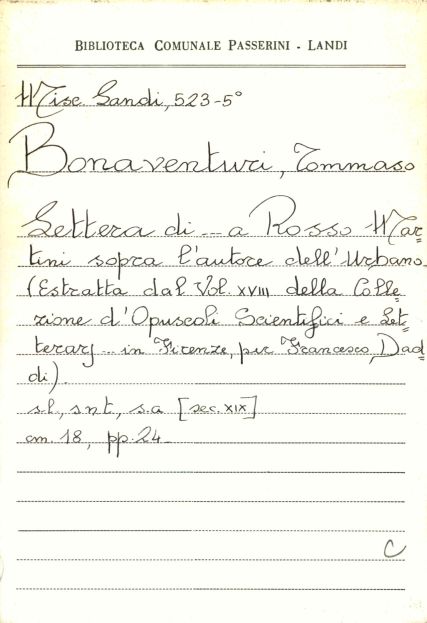 BIBLIOTECA COMUNALE PASSERINI - LANDI
Misc. Landi, 523-5°
Bonaventuri, Tommaso
Lettera di ... a Rosso Mar=
tini sopra l'autore dell'Urbano
(Estratta dal Vol. XVIII della Colle=
zione d'Opuscoli Scientifici e Let=
terarj ... in Firenze, per Francesco Dad=
di).
s.l., s.n.t., s.a. [sec. XIX]
cm. 18, pp. 24
C